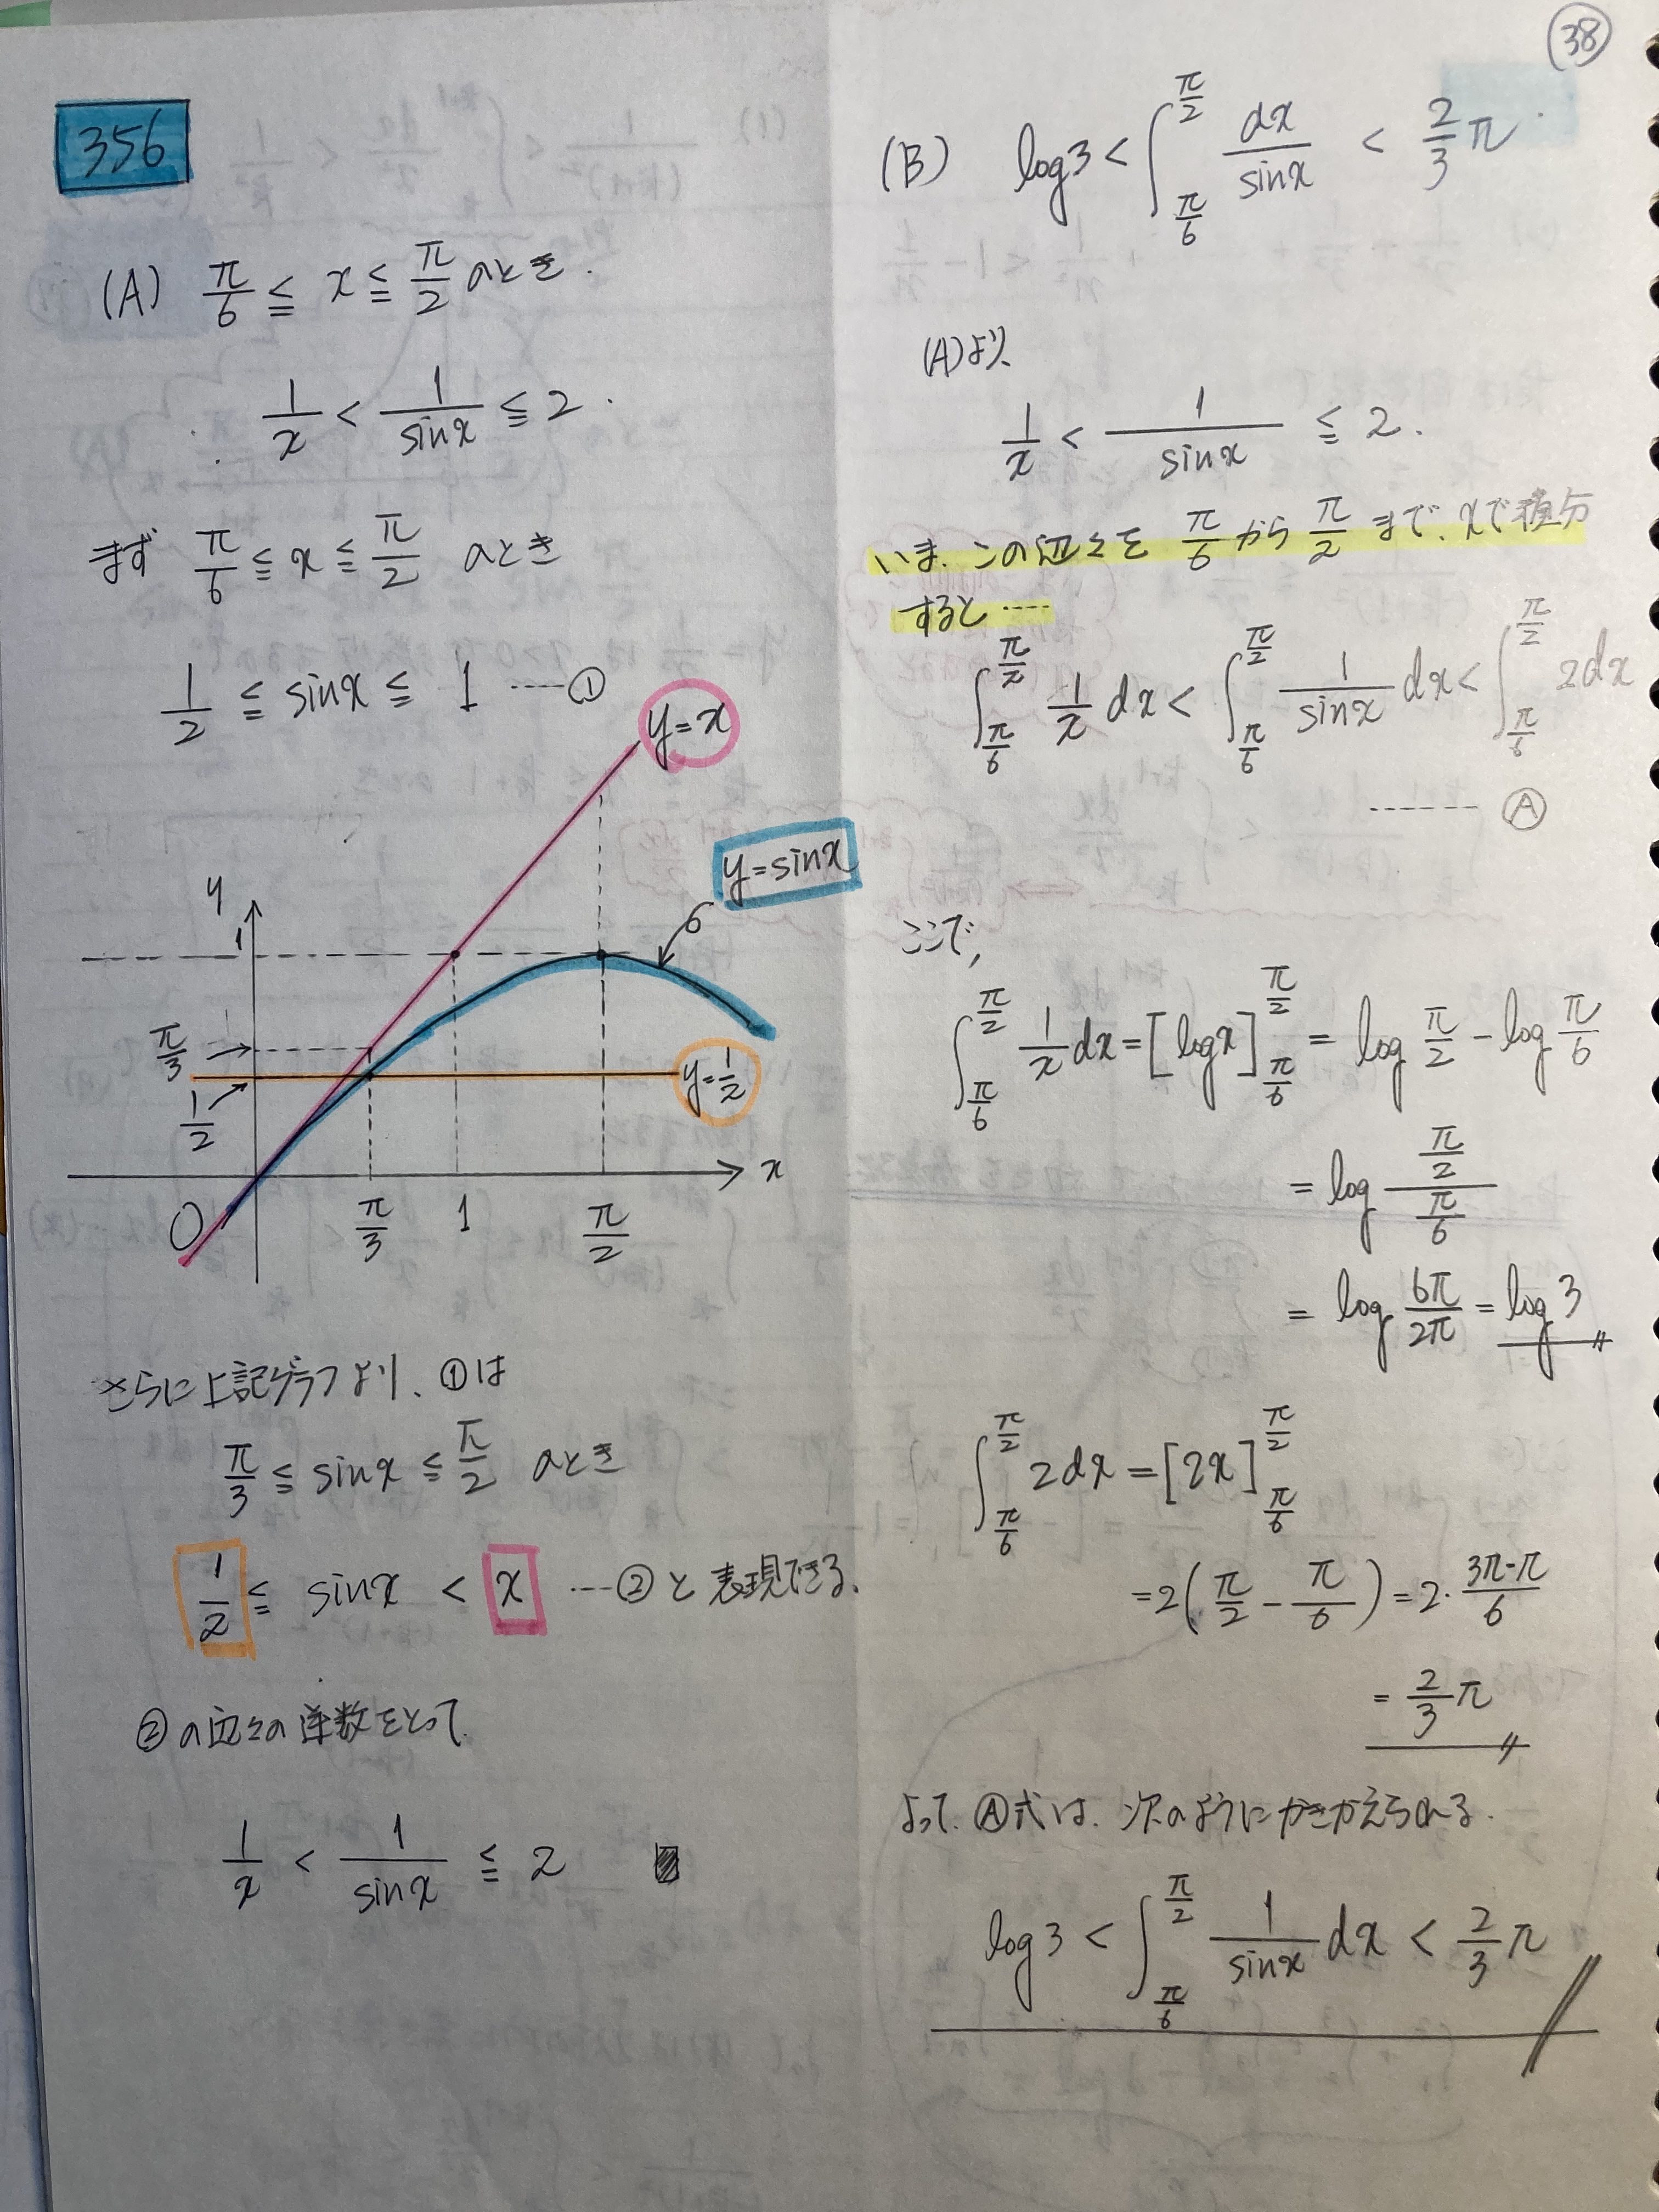 38
356
(A) π/6 ≦ x ≦ π/2 のとき.
1/x < 1/sinx ≦ 2.
まず π/6 ≦ x ≦ π/2 のとき
1/2 ≦ sinx ≦ 1 ……①
y=x
y=sinx
y
1
π/3
1/2
y=1/2
x
O
π/3
1
π/2
さらに上記グラフより、①は
π/3 ≦ sinx ≦ π/2 のとき
1/2 ≦ sinx < x ……② と表現できる.
②の辺々の逆数をとって
1/x < 1/sinx ≦ 2
(B) log3 < ∫_{π/6}^{π/2} dx/sinx < 2/3 π.
(A)より
1/x < 1/sinx ≦ 2.
いま、この辺々を π/6 から π/2 まで、xで積分
すると……
∫_{π/6}^{π/2} 1/x dx < ∫_{π/6}^{π/2} 1/sinx dx < ∫_{π/6}^{π/2} 2dx
…… Ⓐ
ここで,
∫_{π/6}^{π/2} 1/x dx = [logx]_{π/6}^{π/2} = log π/2 - log π/6
= log (π/2)/(π/6)
= log 6π/2π = log3
∫_{π/6}^{π/2} 2dx = [2x]_{π/6}^{π/2}
=2(π/2 - π/6)=2・(3π-π)/6
= 2/3 π
よって、Ⓐ式は、次のようにかきかえられる.
log3 < ∫_{π/6}^{π/2} 1/sinx dx < 2/3 π